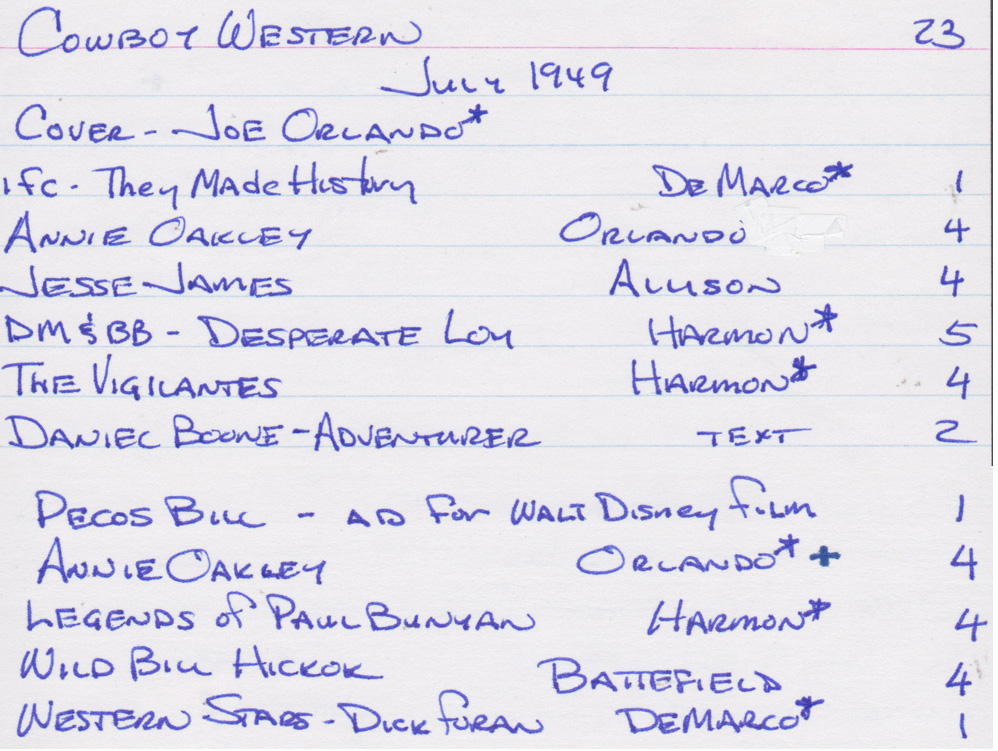 COWBOY WESTERN 23
JULY 1949
COVER - JOE ORLANDO*
ifc - They Made History DEMARCO* 1
ANNIE OAKLEY ORLANDO 4
JESSE JAMES ALLISON 4
DM & BB - DESPERATE LOU HARMON* 5
THE VIGILANTES HARMON* 4
DANIEL BOONE - ADVENTURER TEXT 2
PECOS BILL - AD FOR WALT DISNEY FILM 1
ANNIE OAKLEY ORLANDO* + 4
LEGENDS of PAUL BUNYAN HARMON* 4
WILD BILL HICKOK BATTEFIELD 4
WESTERN STARS - DICK FORAN DEMARCO* 1